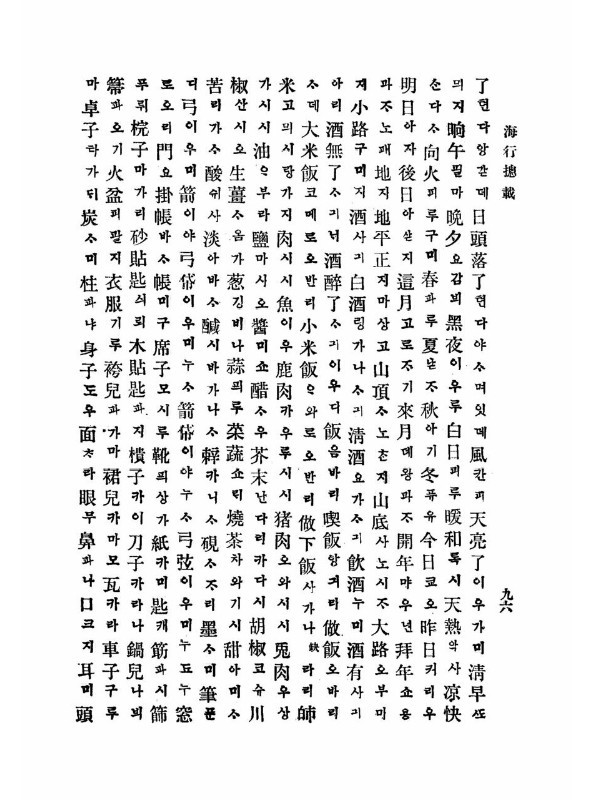 海行摠載
九六
了현다앙칸데日頭落了현다야스며잇몌風칸피天亮了이우가미淸早쏘
믜지晌午필마晩夕요감븨黑夜이우루白日피루暖和독시天熱악사凉快
손다스向火피루구미春과루夏난조秋아기冬퓨유今日쿄오昨日커리우
明日아자後日아산지這月고로조기來月몌왕과조開年먀우년拜年쇼용
과조노패地지地平正지마상고山頂소노촌지山底사노시조大路오부마
지小路구미지酒사긔白酒링가나스긔淸酒요가스긔飮酒누미酒有사긔
아리酒無了스긔너酒醉了스긔이우다飯음바리喫飯앙긔라做飯오바리
스데大米飯코메로오반리小米飯으와로오반리做下飯사가나缺라리師
米고믜시랑가지肉시시魚이우鹿肉카우루시시猪肉오와시시兎肉우상
가시시油으부라鹽마시오醬미쇼醋소우芥末난다리카다시胡椒코슈川
椒산시오生薑소옴가葱깅비나蒜븨루菜蔬쇼뒤燒茶차와기시甜아미소
苦리가소酸쉬사淡아바스醎시바가나소辢카니소硯소조리墨소미筆푼
디弓이우미箭이야弓帒이우미누소箭帒이야누소弓弦이우미누됴누窓
로오리門요掛帳바소帳미구席子모시루靴븨상가紙카미匙캐筯과시篩
푸뤼梡子마가리砂貼匙싀뢰木貼匙과지樻子카이刀子카라나鍋兒나븨
箒과오기火盆피팔지衣服기루袴兒과가마裙兒카마모瓦카라車子구루
마卓子라가듸炭소미柱과냐身子도우面츠라眼무鼻과나口크지耳미頭